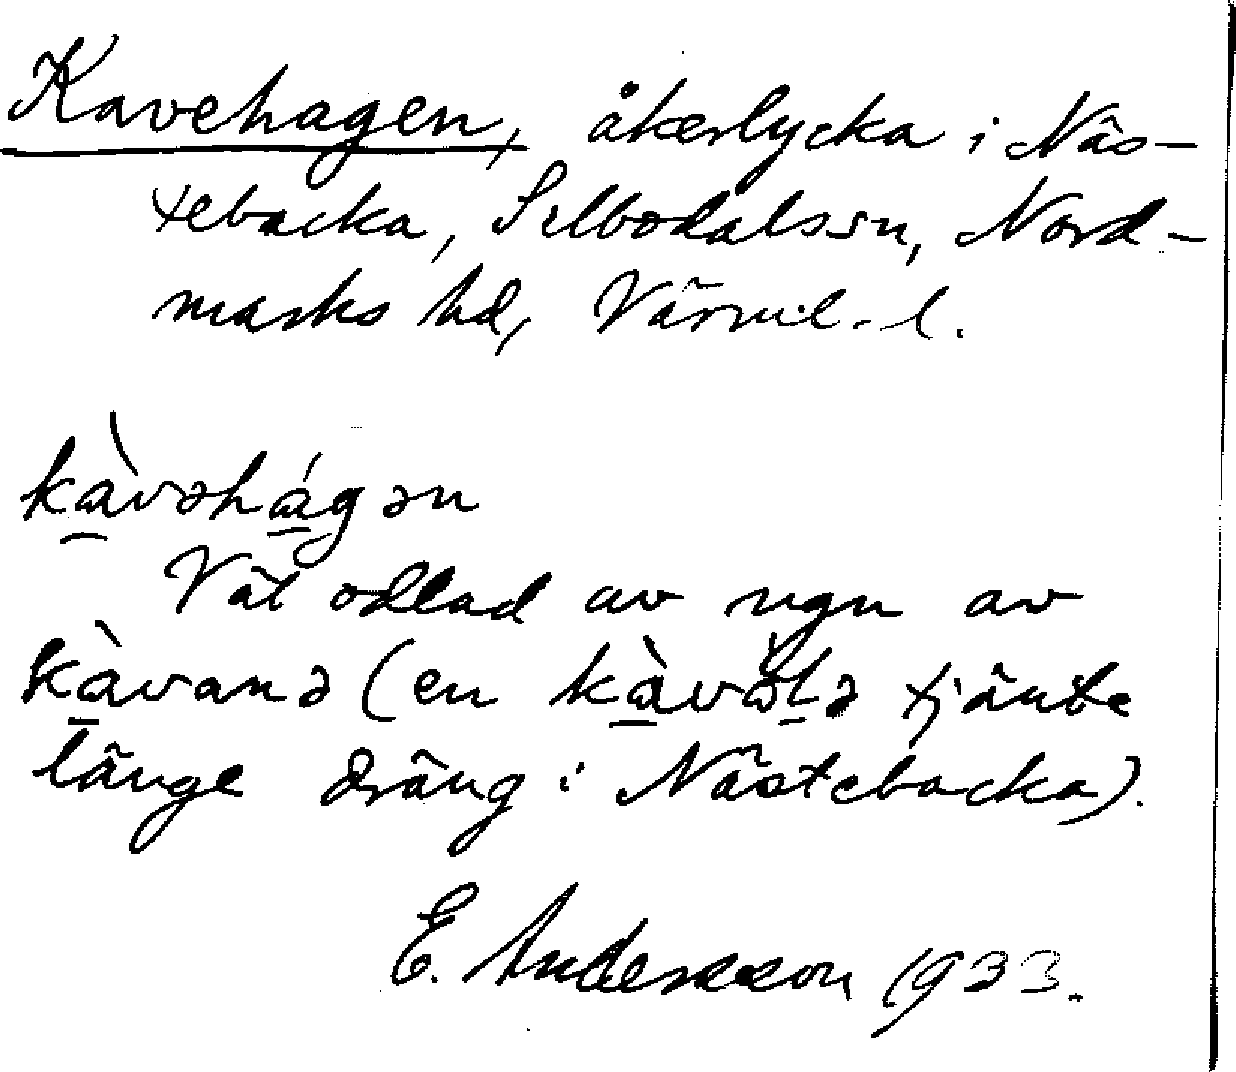 Kavehagen, åkerlycka i Näs-
tebacka, Silbodals sn, Nord-
marks hd, Värml. l.
kàvəhágən
Vät odlad av ngn av
kàvanə (en kàvòlə tjänte
länge dräng i Nästebacka).
E. Andersson 1933.